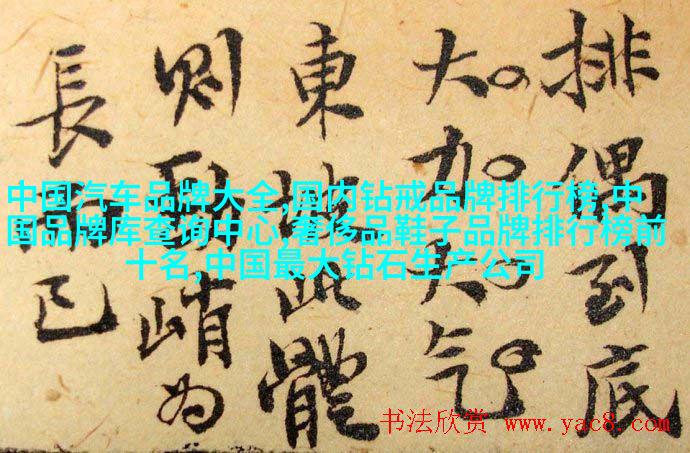 排偶到底
大大气
東坡此體
則峭為
長已
中国汽车品牌大全,国内钻戒品牌排行榜,中
国品牌库查询中心,奢侈品鞋子品牌排行榜前
十名,中国最大钻石生产公司
书法欣赏 www.yac8.com